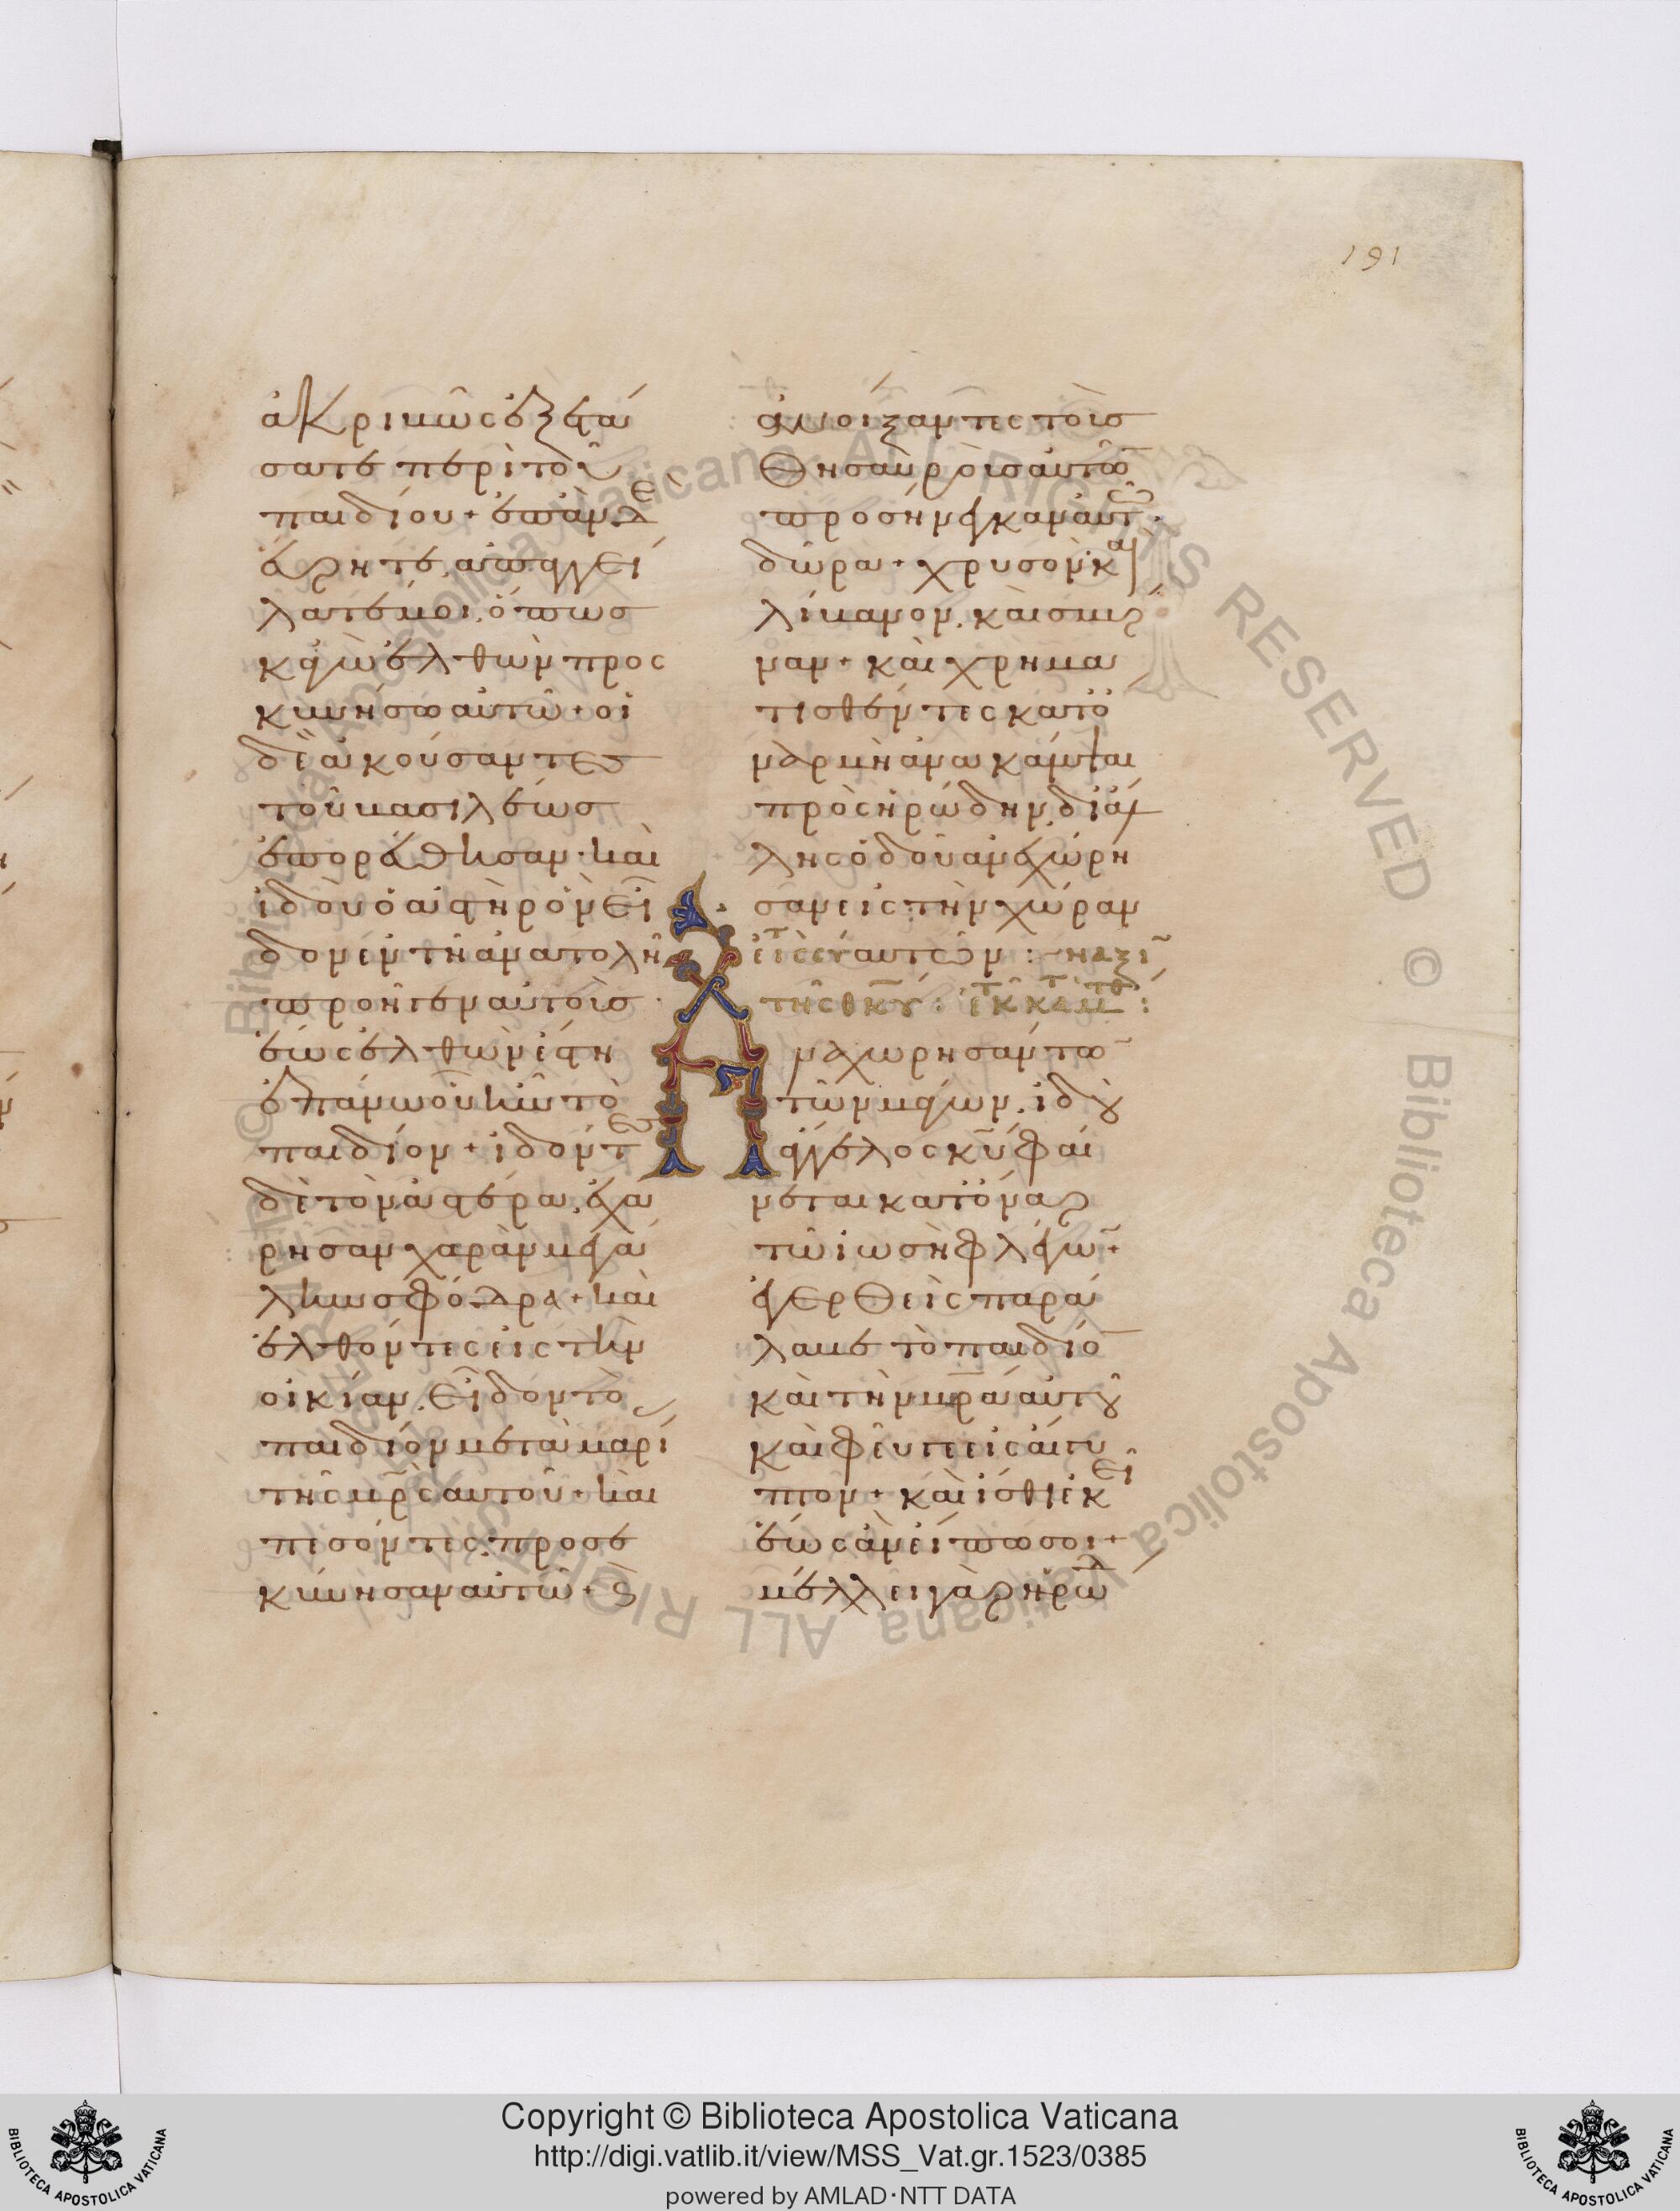 191
ἀκριβῶς ἐξετά
σατε περὶ τοῦ
παιδίου + ἐπὰν δὲ
εὕρητε, ἀπαγγεί
λατέ μοι, ὅπως
κἀγὼ ἐλθὼν προς
κυνήσω αὐτῶ + οἱ
δὲ ἀκούσαντες
τοῦ βασιλέως
ἐπορεύθησαν · καὶ
ἰδοὺ ὁ ἀστὴρ ὃν εἶ
δον ἐν τῆ ἀνατολῆ
προῆγεν αὐτοὺς ·
ἕως ἐλθὼν ἔστη
ἐπάνω οὗ ἦν τὸ
παιδίον + ἰδόντες
δὲ τὸν ἀστέρα, ἐχά
ρησαν χαρὰν μεγά
λην σφόδρα + καὶ
ἐλθόντες εἰς τὴν
οἰκίαν, εἶδον τὸ
παιδίον μετὰ μαρί
τῆς μρς αὐτοῦ + καὶ
πεσόντες, προσε
κύνησαν αὐτῶ + καὶ
ἀνοίξαντες τοὺς
θησαυροὺς αὐτῶ
προσήνεγκαν αὐτῶ
δῶρα + χρυσὸν καὶ
λίβανον, καὶ σμύρ
ναν + καὶ χρημα
τισθέντες κατ' ὄ
ναρ μὴ ἀνακάμψαι
πρὸς ἡρώδην, δι' ἄλ
λης ὁδοῦ ἀνεχώρη
σαν εἰς τὴν χώραν
αὐτῶν :
τῆς θκου :
Ἀναχωρησάντω
τῶν μάγων, ἰδοὺ
ἄγγελος κυ φαί
νεται κατ' ὄναρ
τῶ ἰωσὴφ λέγω +
ἐγερθεὶς παρά
λαβε τὸ παιδίο
καὶ τὴν μρα αὐτοῦ
καὶ φεῦγε εἰς αἴγυ
πτον + καὶ ἴσθι ἐκεῖ
ἕως ἂν εἴπω σοι +
μέλλει γὰρ ἡρώδ
Copyright © Biblioteca Apostolica Vaticana
http://digi.vatlib.it/view/MSS_Vat.gr.1523/0385
powered by AMLAD·NTT DATA
BIBLIOTECA APOSTOLICA VATICANA
BIBLIOTECA APOSTOLICA VATICANA